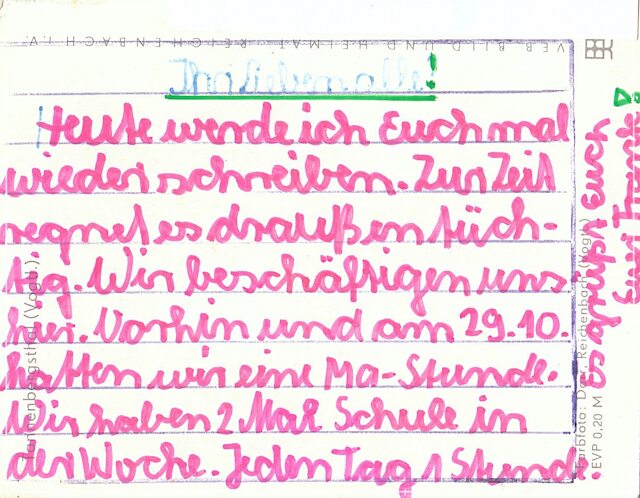 VEB BILD UND HEIMAT REICHENBACH I.V.
Ihr lieben alle!
Heute werde ich Euch mal
wieder schreiben. Zur Zeit
regnet es draußen tüch-
tig. Wir beschäftigen uns
hier. Vorhin und am 29.10.
hatten wir eine Ma-Stunde.
Wir haben 2 Mal Schule in
der Woche. Jeden Tag 1 Stund.
Es grüßt Euch
Eure
Tannenbergsthal (Vogtl.)
Farbfoto: Reichenbach (Vogtl.)
EVP 0,20 M